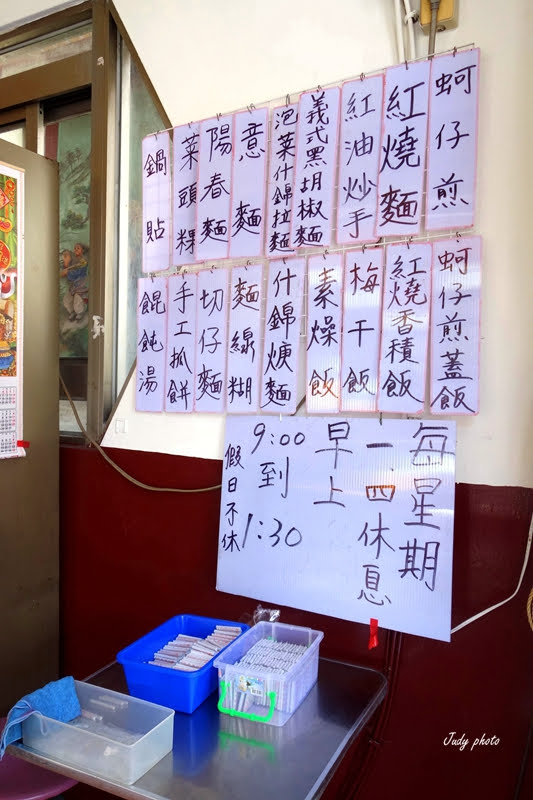 蚵仔煎
紅燒麵
紅油炒手
義式黑胡椒麵
泡菜什錦拉麵
意麵
陽春麵
菜頭粿
鍋貼
蚵仔煎蓋飯
紅燒香積飯
梅干飯
素燥飯
什錦焿麵
麵線糊
切仔麵
手工抓餅
餛飩湯
每星期
一、四休息
早上
9:00
到
1:30
假日不休
Judy photo